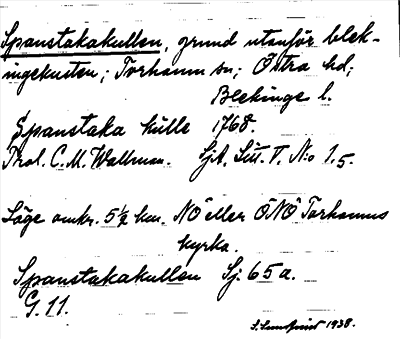 Spanstakakullen, grund utanför blek-
ingekusten; Torhamn sn; Östra hd;
Blekinge l.
Spanstaka kulle 1768.
Thol. C. M. Wallman. Sjk. Litt. V. N:o 1.5.
Läge omkr. 5½ km. NÖ eller ÖNÖ Torhamns
kyrka.
Spanstakakullen Sj. 65 a.
G. 11.
1938.